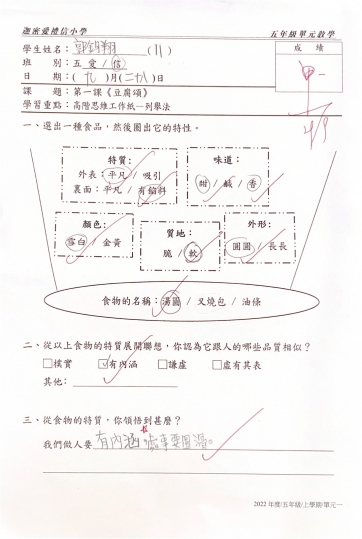 迦密愛禮信小學 五年級單元教學
學生姓名：郭鎧翔(11) 成績
班 別：五 愛 / 信
日 期：(九)月(二十八)日
課 題：第一課《豆腐頌》
學習重點：高階思維工作紙—列舉法
一、選出一種食品，然後圈出它的特性。
特質： 味道：
外表：平凡 / 吸引 甜 / 鹹 / 香
裏面：平凡 / 有餡料
顏色： 質地： 外形：
雪白 / 金黃 脆 / 軟 圓圓 / 長長
食物的名稱：湯圓 / 叉燒包 / 油條
二、從以上食物的特質展開聯想，你認為它跟人的哪些品質相似？
□樸實 ☑有內涵 □謙虛 □虛有其表
其他：
三、從食物的特質，你領悟到甚麼？
我們做人要有內涵，處事要圓滑。
2022 年度/五年級/上學期/單元一